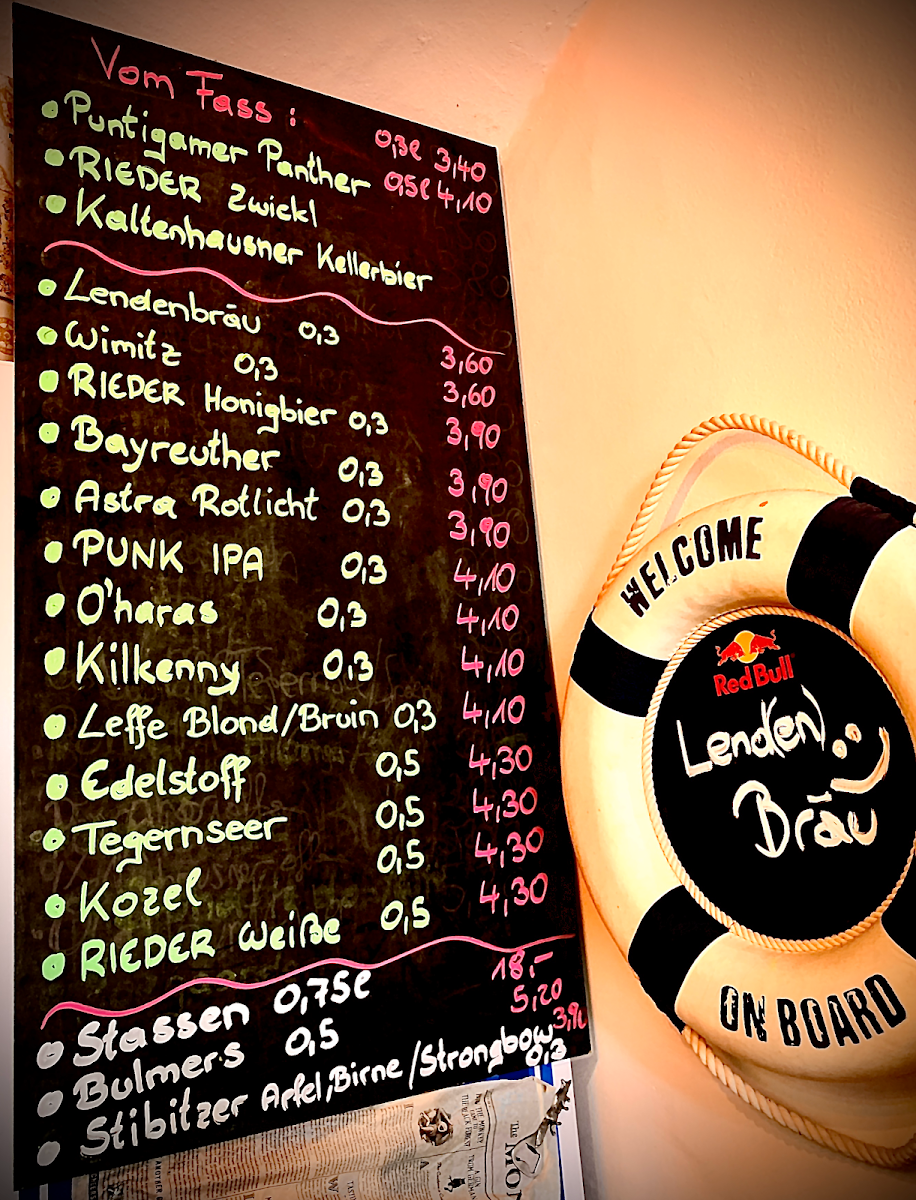 Vom Fass :
• Puntigamer Panther 0,3l 3,40
• RIEDER Zwickl 0,5l 4,10
• Kaltenhausner Kellerbier
• Lendenbräu 0,3 3,60
• Wimitz 0,3 3,60
• RIEDER Honigbier 0,3 3,90
• Bayreuther 0,3 3,90
• Astra Rotlicht 0,3 3,90
• PUNK IPA 0,3 4,10
• O'haras 0,3 4,10
• Kilkenny 0,3 4,10
• Leffe Blond/Bruin 0,3 4,10
• Edelstoff 0,5 4,30
• Tegernseer 0,5 4,30
• Kozel 0,5 4,30
• RIEDER Weiße 0,5 4,30
• Stassen 0,75l 18,-
• Bulmers 0,5 5,20
• Stibitzer Apfel,Birne/Strongbow 0,3
WELCOME
Red Bull
Lend(en)
Bräu
ON BOARD
The